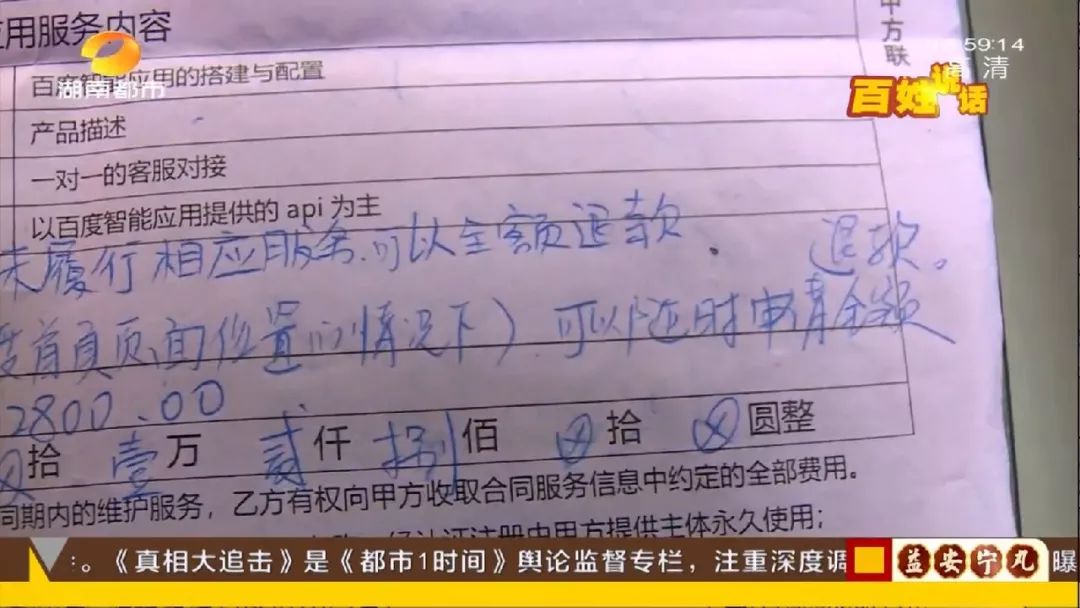 应用服务内容
甲方联
59:14
高清
湖南都市
百姓说话
百度智能应用的搭建与配置
产品描述
一对一的客服对接
以百度智能应用提供的 api 为主
未履行相应服务.可以全额退款. 退款。
首页页面位置的情况下)可以随时申请全额
2800.00
拾 壹万 贰仟 捌佰 ⊗拾 ⊗圆整
同期内的维护服务，乙方有权向甲方收取合同服务信息中约定的全部费用。
经认证注册由甲方提供主体永久使用；
。《真相大追击》是《都市1时间》舆论监督专栏，注重深度调
益安宁丸 曝